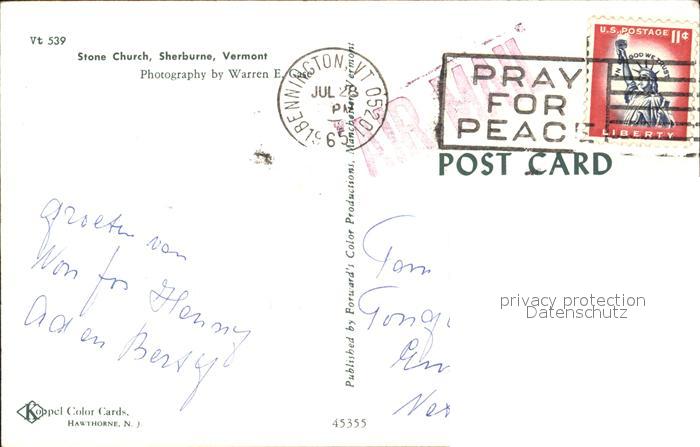 Vt 539
Stone Church, Sherburne, Vermont
Photography by Warren E.
BENNINGTON, VT 05201
JUL 28
PM
1965
AIR MAIL
PRAY
FOR
PEACE
U.S. POSTAGE 11¢
IN GOD WE TRUST
LIBERTY
POST CARD
Published by Forward's Color Productions, Manchester, Vermont
Groeten van
Henny
Ad en Betsy
Tom
privacy protection
Datenschutz
Koppel Color Cards,
HAWTHORNE, N. J.
45355